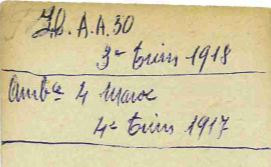 Hb. A.A. 30
3e Trim 1918
Ambce 4 Maroc
4e Trim 1917